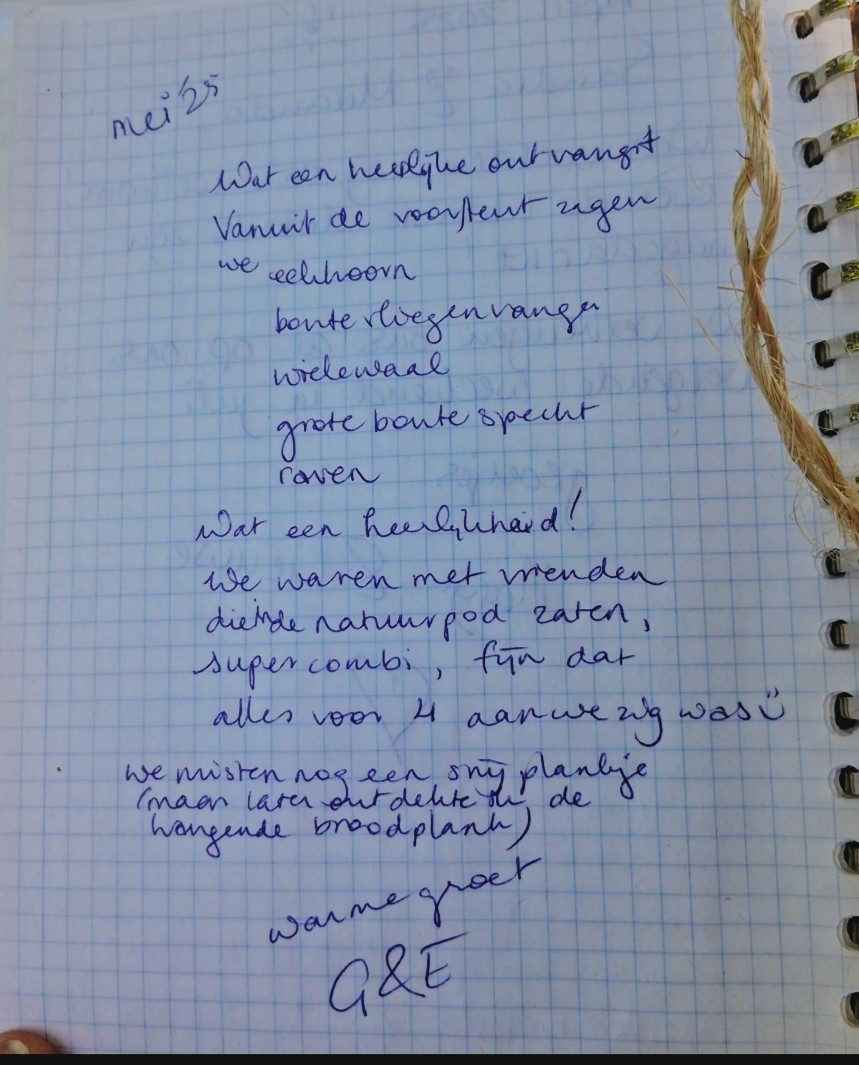 mei '25
Wat een heerlijke ontvangst
Vanuit de voortent zagen
we eekhoorn
bonte vliegenvanger
wielewaal
grote bonte specht
raven
Wat een heerlijkheid!
We waren met vrienden
die in de natuurpod zaten,
supercombi, fijn dat
alles voor 4 aanwezig was ☺
we misten nog een snijplankje
(maar later ontdekte ik de
hangende broodplank)
warme groet
G&E